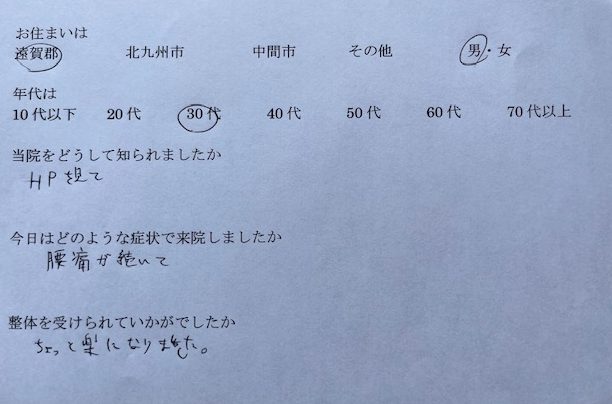 お住まいは
遠賀郡 北九州市 中間市 その他 男・女
年代は
10代以下 20代 30代 40代 50代 60代 70代以上
当院をどうして知られましたか
HPを見て
今日はどのような症状で来院しましたか
腰痛が続いて
整体を受けられていかがでしたか
ちょっと楽になりました。